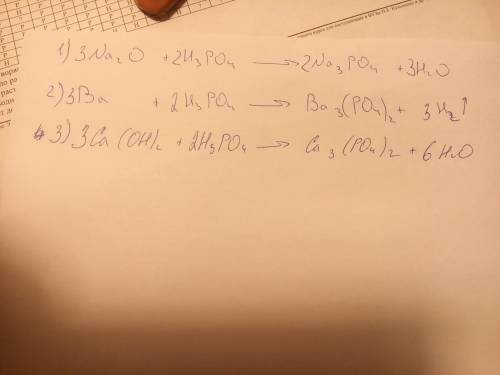 1) 3Na₂O + 2H₃PO₄ → 2Na₃PO₄ + 3H₂O
2) 3Ba + 2H₃PO₄ → Ba₃(PO₄)₂ + 3H₂↑
3) 3Ca(OH)₂ + 2H₃PO₄ → Ca₃(PO₄)₂ + 6H₂O